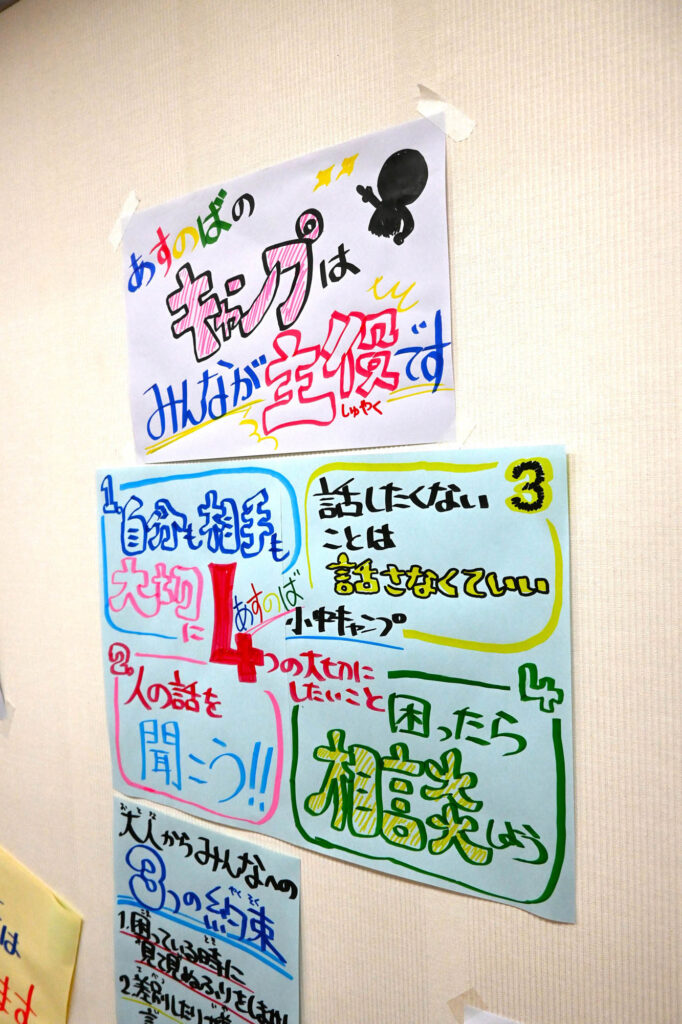 あすのばの
キャンプは
みんなが主役です
しゅやく
1.自分も相手も
大切に
2.人の話を
聞こう!!
あすのば
小中キャンプ
4つの大切に
したいこと
3
話したくない
ことは
話さなくていい
4
困ったら
相談しよう
おとな
大人からみんなへの
やくそく
3つの約束
1.困っている時に
見て見ぬふりをしません
2.差別したり
は
ます